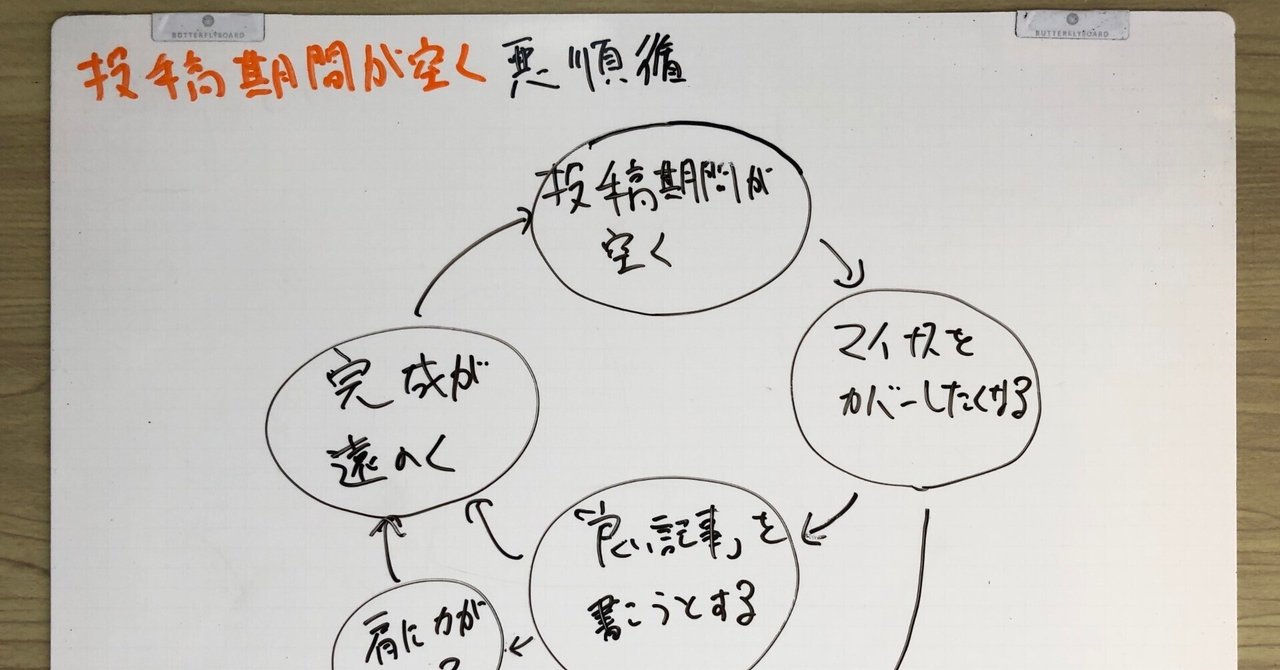 BUTTERFLYBOARD
BUTTERFLYBOARD
投稿期間が空く 悪順循
投稿期間が
空く
マイナスを
カバーしたくなる
「良い記事」を
書こうとする
完成が
遠のく
肩に力が